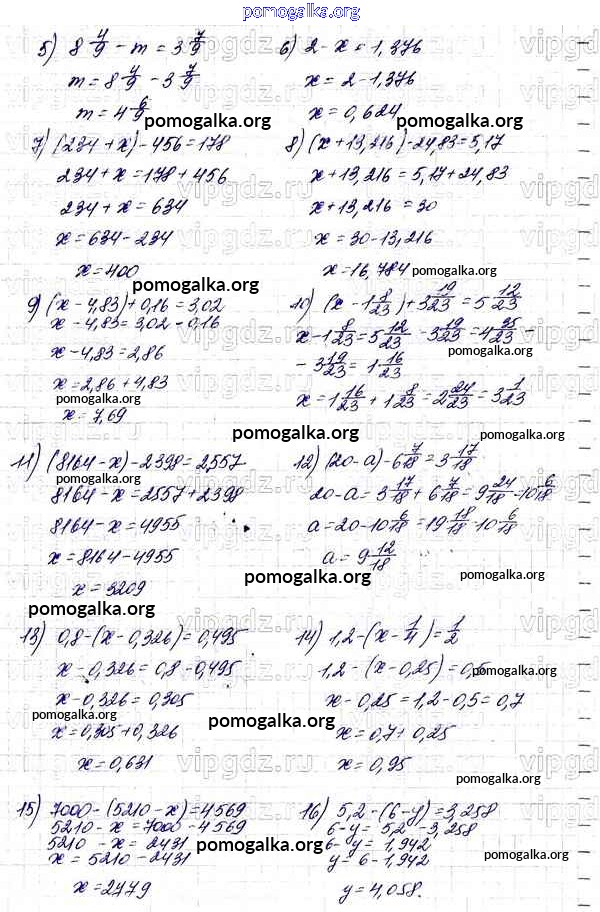 pomogalka.org
5) 8 4/9 - m = 3 7/9
m = 8 4/9 - 3 7/9
m = 4 6/9
6) 2 - x = 1,376
x = 2 - 1,376
x = 0,624
pomogalka.org
pomogalka.org
7) (234 + x) - 456 = 178
234 + x = 178 + 456
234 + x = 634
x = 634 - 234
x = 400
8) (x + 13,216) - 24,83 = 5,17
x + 13,216 = 5,17 + 24,83
x + 13,216 = 30
x = 30 - 13,216
x = 16,784
pomogalka.org
pomogalka.org
9) (x - 4,83) + 0,16 = 3,02
x - 4,83 = 3,02 - 0,16
x - 4,83 = 2,86
x = 2,86 + 4,83
x = 7,69
10) (x - 1 8/23) + 3 19/23 = 5 12/23
x - 1 8/23 = 5 12/23 - 3 19/23 = 4 35/23 -
- 3 19/23 = 1 16/23
x = 1 16/23 + 1 8/23 = 2 24/23 = 3 1/23
pomogalka.org
pomogalka.org
pomogalka.org
11) (8164 - x) - 2398 = 2557
8164 - x = 2557 + 2398
8164 - x = 4955
x = 8164 - 4955
x = 3209
12) (20 - a) - 6 7/18 = 3 17/18
20 - a = 3 17/18 + 6 7/18 = 9 24/18 = 10 6/18
a = 20 - 10 6/18 = 19 18/18 - 10 6/18
a = 9 12/18
pomogalka.org
pomogalka.org
pomogalka.org
13) 0,8 - (x - 0,326) = 0,495
x - 0,326 = 0,8 - 0,495
x - 0,326 = 0,305
x = 0,305 + 0,326
x = 0,631
14) 1,2 - (x - 1/4) = 1/2
1,2 - (x - 0,25) = 0,5
x - 0,25 = 1,2 - 0,5 = 0,7
x = 0,7 + 0,25
x = 0,95
pomogalka.org
pomogalka.org
pomogalka.org
pomogalka.org
15) 7000 - (5210 - x) = 4569
5210 - x = 7000 - 4569
5210 - x = 2431
x = 5210 - 2431
x = 2779
16) 5,2 - (6 - y) = 3,258
6 - y = 5,2 - 3,258
6 - y = 1,942
y = 6 - 1,942
y = 4,058.
pomogalka.org
pomogalka.org